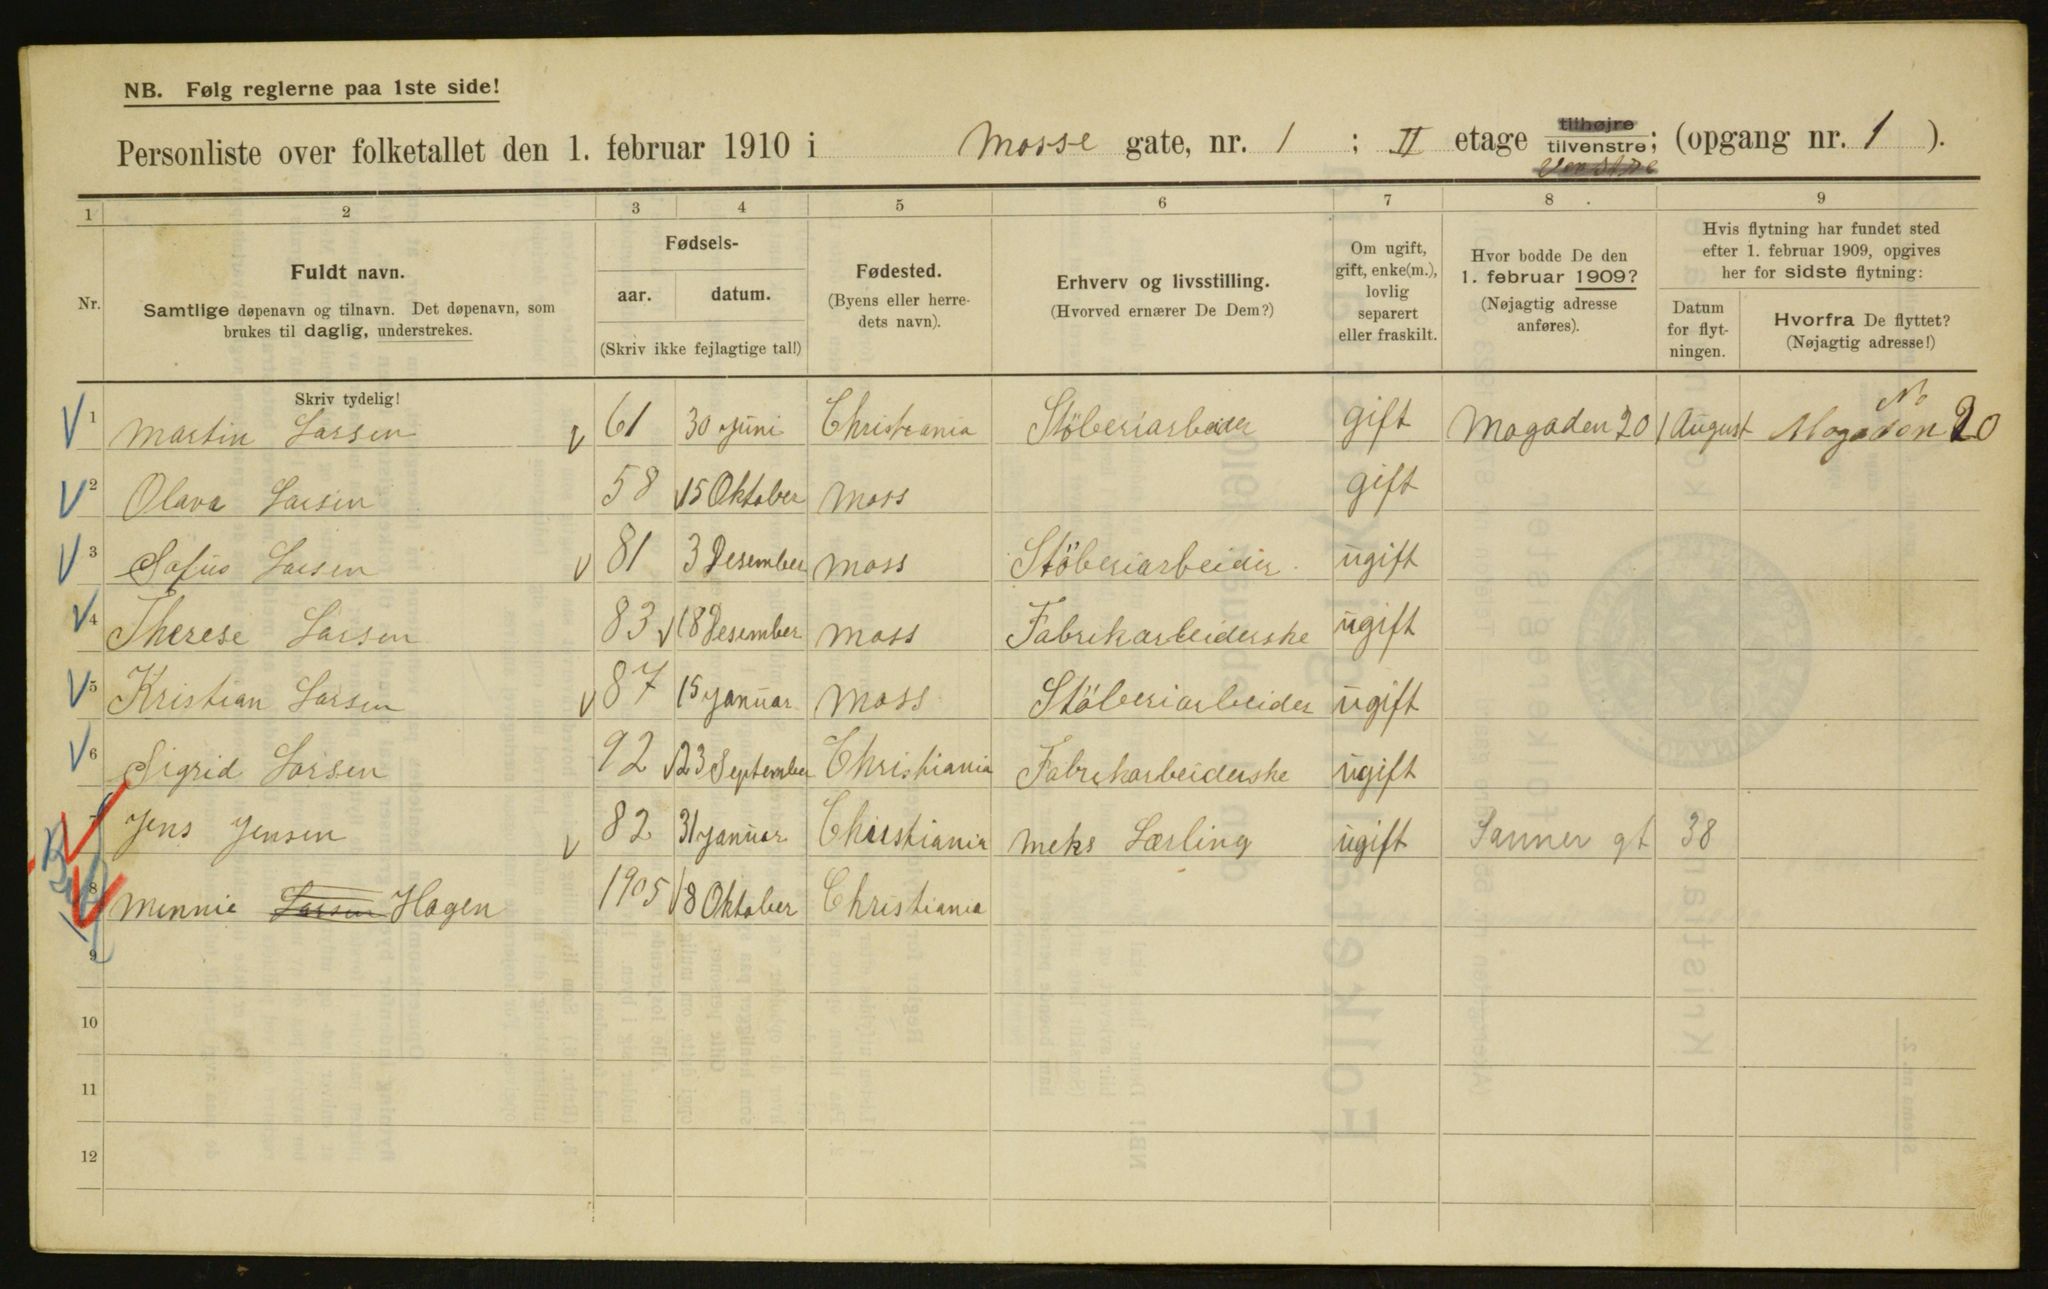 NB. Følg reglerne paa 1ste side!
Personliste over folketallet den 1. februar 1910 i Mosse gate, nr. 1 ; II etage tilhøjre tilvenstre; (opgang nr. 1 ).
venstre
1 2 3 4 5 6 7 8 9
Nr.
Fuldt navn.
Samtlige døpenavn og tilnavn. Det døpenavn, som
brukes til daglig, understrekes.
Fødsels-
aar. datum.
(Skriv ikke fejlagtige tal!)
Fødested.
(Byens eller herre-
dets navn).
Erhverv og livsstilling.
(Hvorved ernærer De Dem?)
Om ugift,
gift, enke(m.),
lovlig
separert
eller fraskilt.
Hvor bodde De den
1. februar 1909?
(Nøjagtig adresse
anføres).
Hvis flytning har fundet sted
efter 1. februar 1909, opgives
her for sidste flytning:
Datum
for flyt-
ningen.
Hvorfra De flyttet?
(Nøjagtig adresse!)
Skriv tydelig!
1 Martin Larsen 61 30 Juni Christiania Stöberiarbeider gift Mogaden 20 1 August Mogaden No 20
2 Olava Larsen 58 15 Oktober Moss gift
3 Sofus Larsen 81 3 Desember Moss Stöberiarbeider ugift
4 Therese Larsen 83 18 Desember Moss Fabrikarbeiderske ugift
5 Kristian Larsen 87 15 Januar Moss Stöberiarbeider ugift
6 Sigrid Larsen 92 23 September Christiania Fabrikarbeiderske ugift
7 Jens Jensen 82 31 Januar Christiania Meks Lærling ugift Sanner gt 38
8 Minnie Larsen Hagen 1905 8 Oktober Christiania
9
10
11
12